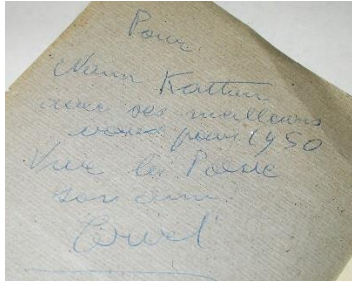 Pour
Naïm Kattan
avec ses meilleurs
voeux pour 1950
Vive la Poésie
son ami